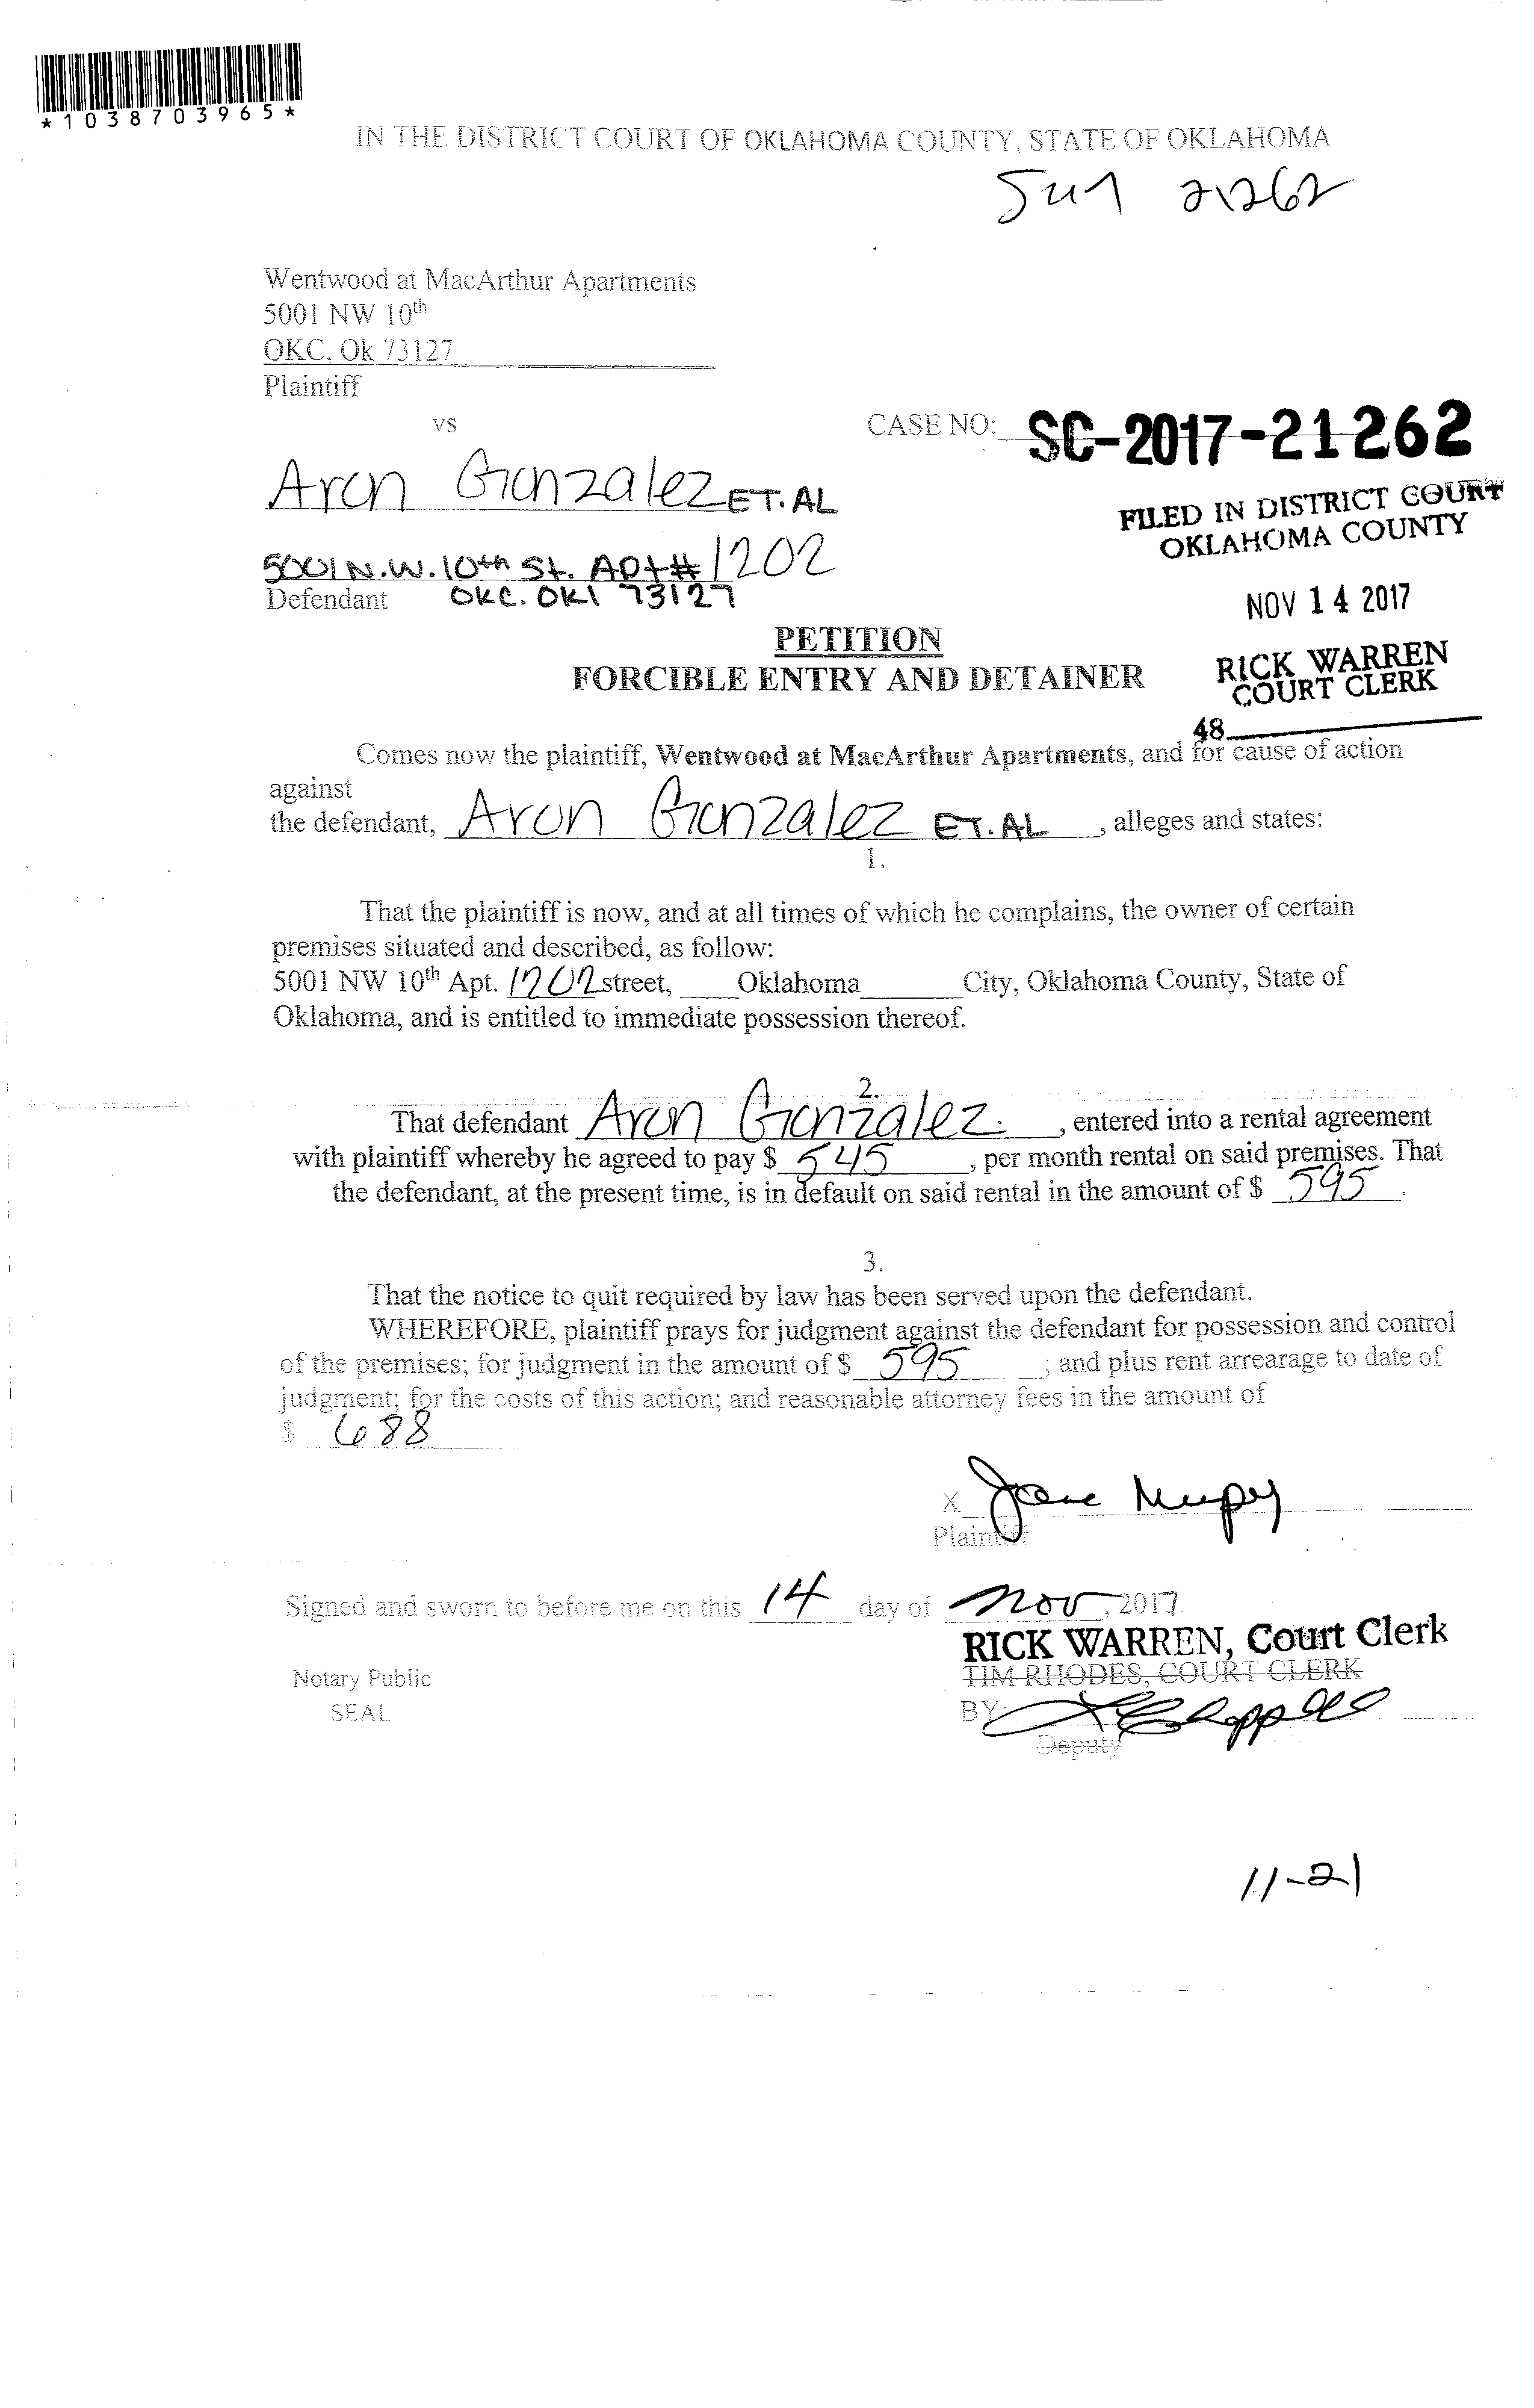 *1038703965*
IN THE DISTRICT COURT OF OKLAHOMA COUNTY, STATE OF OKLAHOMA
21262
Wentwood at MacArthur Apartments
5001 NW 10th
OKC, Ok 73127
Plaintiff
vs
CASE NO: SC-2017-21262
Aron Gonzalez ET.AL
FILED IN DISTRICT COURT
OKLAHOMA COUNTY
5001 N.W. 10th St. Apt# 1202
Defendant OKC. OKl 73127
NOV 14 2017
PETITION
FORCIBLE ENTRY AND DETAINER
RICK WARREN
COURT CLERK
48
Comes now the plaintiff, Wentwood at MacArthur Apartments, and for cause of action
against
the defendant, Aron Gonzalez ET.AL , alleges and states:
1.
That the plaintiff is now, and at all times of which he complains, the owner of certain
premises situated and described, as follow:
5001 NW 10th Apt. 1202 street, Oklahoma City, Oklahoma County, State of
Oklahoma, and is entitled to immediate possession thereof.
2.
That defendant Aron Gonzalez. , entered into a rental agreement
with plaintiff whereby he agreed to pay $ 545 , per month rental on said premises. That
the defendant, at the present time, is in default on said rental in the amount of $ 595 .
3.
That the notice to quit required by law has been served upon the defendant.
WHEREFORE, plaintiff prays for judgment against the defendant for possession and control
of the premises; for judgment in the amount of $ 595 ; and plus rent arrearage to date of
judgment; for the costs of this action; and reasonable attorney fees in the amount of
$ 688
X
Plaintiff
Signed and sworn to before me on this 14 day of Nov, 2017.
RICK WARREN, Court Clerk
Notary Public TIM RHODES, COURT CLERK
SEAL BY:
Deputy
11-21